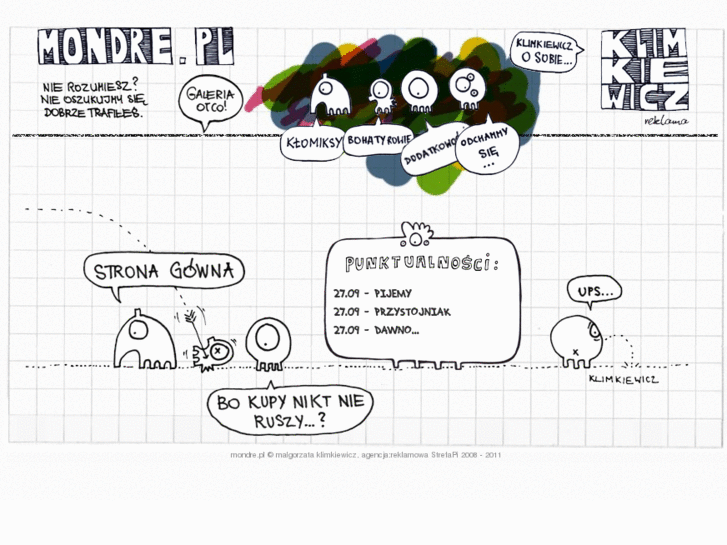 MONDRE.PL
NIE ROZUMIESZ?
NIE OSZUKUJMY SIĘ,
DOBRZE TRAFIŁEŚ.
GALERIA
OTCO!
KŁOMIKSY
BOHATYROWIE
DODATKOWO
ODCHAMMY
SIĘ
...
KLIMKIEWICZ
O SOBIE...
KLIM
KIE
WICZ
reklama
STRONA GÓWNA
PUNKTUALNOŚCI:
27.09 - PIJEMY
27.09 - PRZYSTOJNIAK
27.09 - DAWNO...
UPS...
KLIMKIEWICZ
BO KUPY NIKT NIE
RUSZY...?
mondre.pl © malgorzata klimkiewicz, agencja reklamowa StretaPi 2008 - 2011